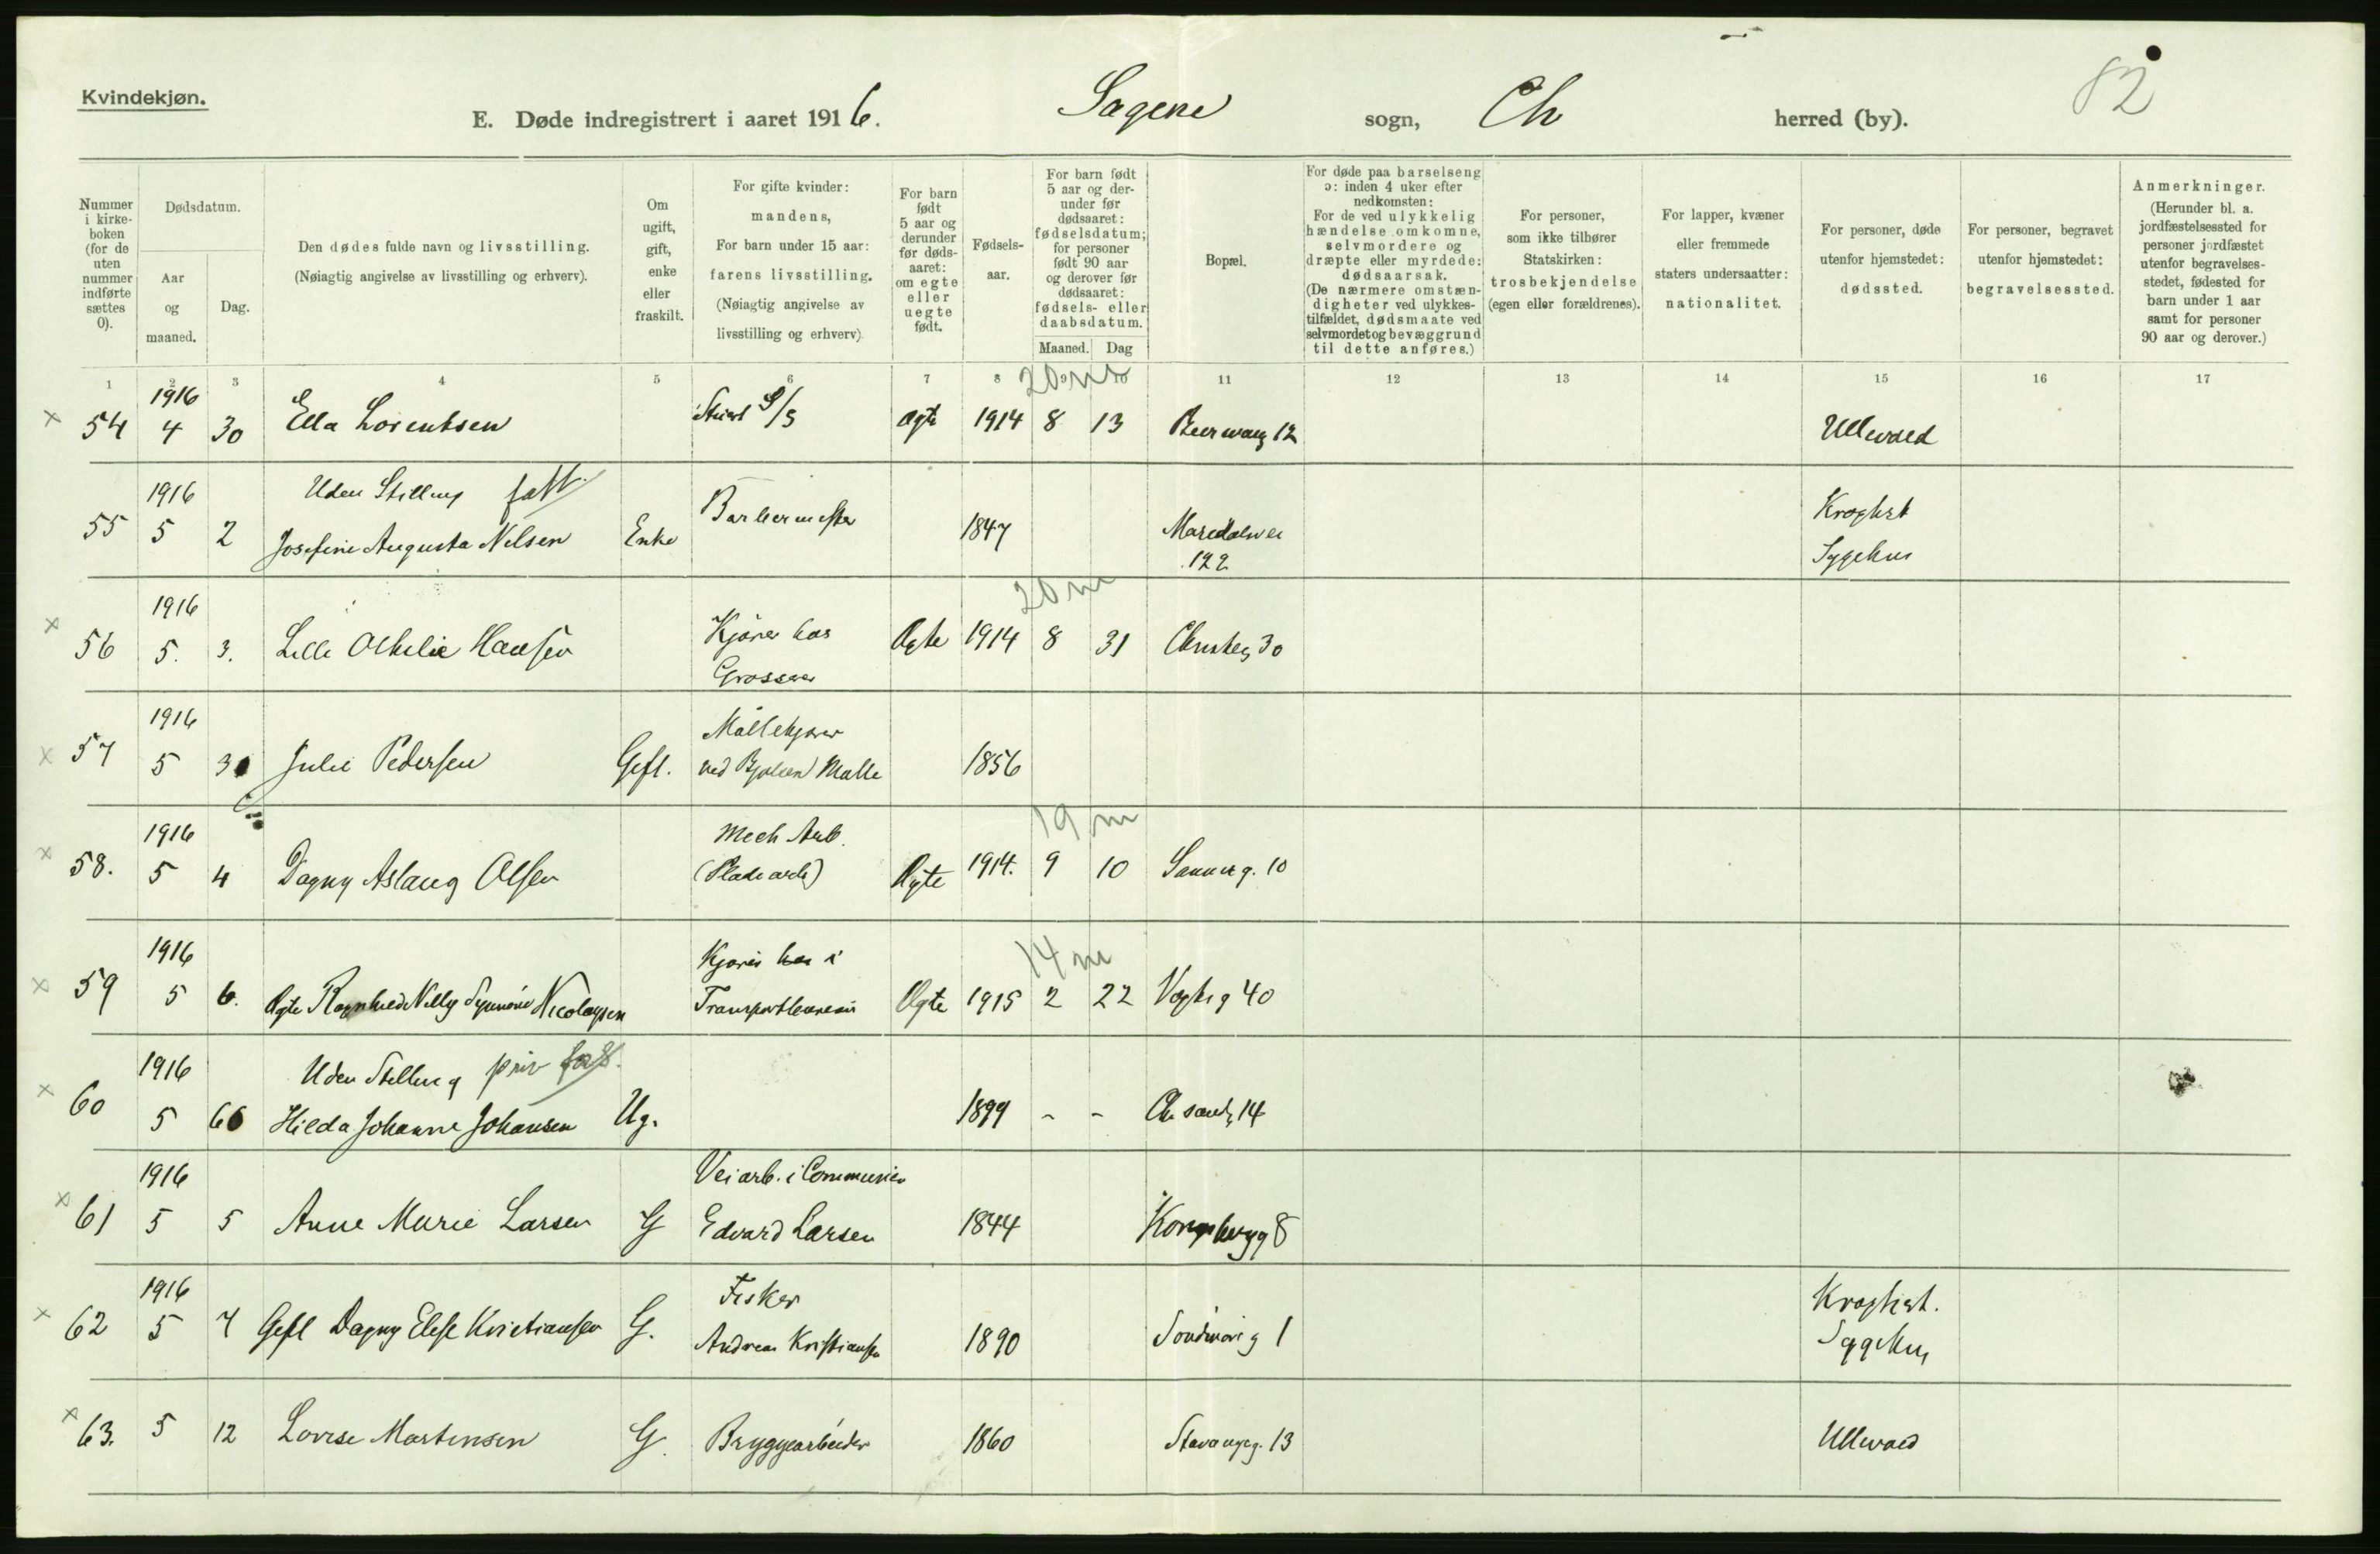 Kvindekjøn.
E. Døde indregistrert i aaret 1916. Sagene sogn, Ch herred (by).
82
Nummer i kirkeboken (for de uten nummer indførte sættes 0).
Dødsdatum.
Aar og maaned.
Dag.
Den dødes fulde navn og livsstilling.
(Nøiagtig angivelse av livsstilling og erhverv).
Om ugift, gift, enke eller fraskilt.
For gifte kvinder: mandens,
For barn under 15 aar: farens livsstilling.
(Nøiagtig angivelse av livsstilling og erhverv)
For barn født 5 aar og derunder før dødsaaret: om egte eller uegte født.
Fødselsaar.
For barn født 5 aar og derunder før dødsaaret: fødselsdatum; for personer født 90 aar og derover før dødsaaret: fødsels- eller daabsdatum.
Maaned. Dag
Bopæl.
For døde paa barselseng ɔ: inden 4 uker efter nedkomsten:
For de ved ulykkelig hændelse omkomne, selvmordere og dræpte eller myrdede: dødsaarsak.
(De nærmere omstændigheter ved ulykkestilfældet, dødsmaate ved selvmordet og bevæggrund til dette anføres.)
For personer, som ikke tilhører Statskirken: trosbekjendelse (egen eller forældrenes).
For lapper, kvæner eller fremmede staters undersaatter: nationalitet.
For personer, døde utenfor hjemstedet: dødssted.
For personer, begravet utenfor hjemstedet: begravelsessted.
Anmerkninger.
(Herunder bl. a. jordfæstelsessted for personer jordfæstet utenfor begravelsesstedet, fødested for barn under 1 aar samt for personer 90 aar og derover.)
1 2 3 4 5 6 7 8 9 10 11 12 13 14 15 16 17
20 m
1916
54 4 30 Ella Lorentsen S/S ægte 1914 8 13 12 Ullevaal
1916 Uden Stilling fatt. Kroghst
55 5 2 Josefine Augusta Nilsen Enke Barbermester 1847 Maridalsvei
122 Sygehus
20 m
1916
56 5. 3. Lilli Othelie Hansen Kjører hos Ægte 1914 8 31 30
Grosserer
1916 Møllekjører
57 5 30 Julie Pedersen Gift. ved Bjølsen Mølle 1856
19 m
1916 Mech Arb.
58. 5 4 Dagny Aslaug Olsen (Pladearb) Ægte 1914. 9 10 Sannerg. 10
14 m
1916 Kjører hos i
59 5 6. Ægte Ragnhild Nelly Nicolaysen Ægte 1915 2 22 Vogtsg 40
1916 Uden Stilling priv fatt.
60 5 6 Hilda Johanne Johansen Ug. 1899 - - Chrsandg 14
1916 Veiarb. i Communen
61 5 5 Anne Marie Larsen G Edvard Larsen 1844 Kongsbergg 8
1916 Fisker Kroghst.
62 5 7 Gift Dagny Elise Kristiansen G. Andreas Kristiansen 1890 Søndmørsg 1 Sygehus
63. 5 12 Lovise Martinsen G. Bryggearbeider 1860 Stavangerg. 13 Ullevaal